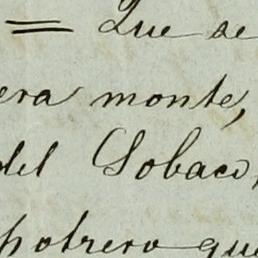 = Que se
era monte,
del Sobaco,
potrero que